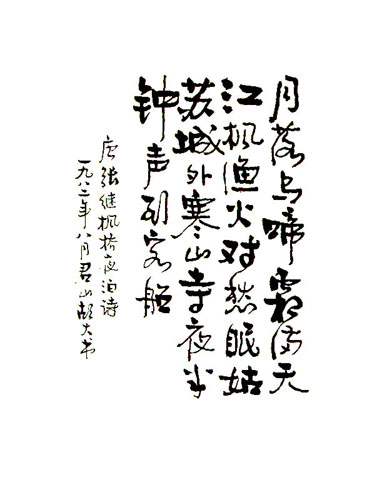 月落乌啼霜满天
江枫渔火对愁眠姑
苏城外寒山寺夜半
钟声到客船
唐张继枫桥夜泊诗
一九八二年八月君山大书